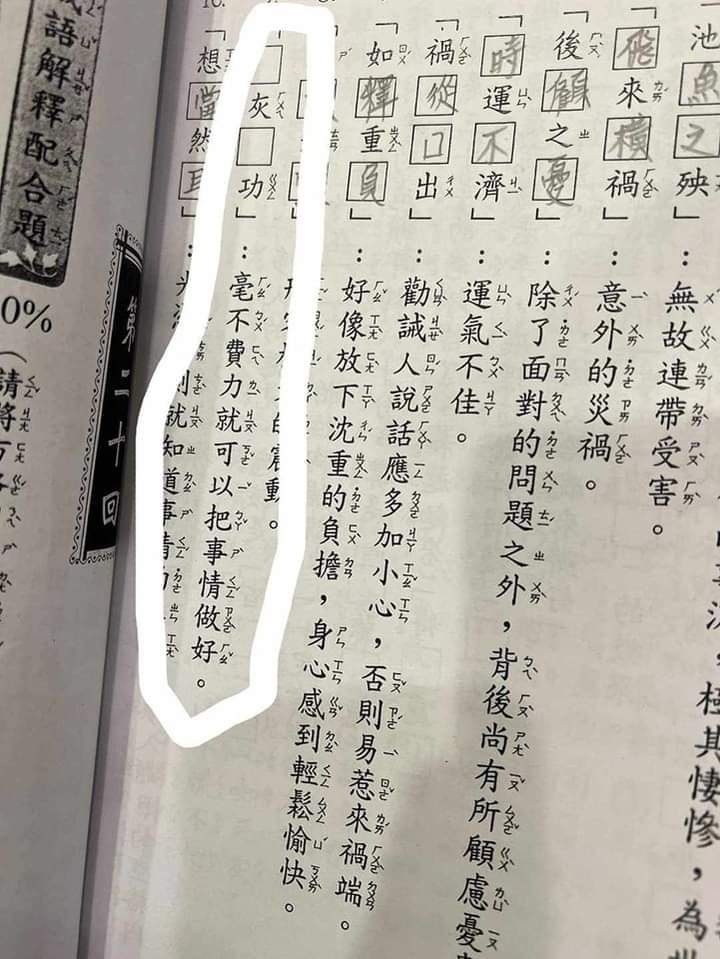 極其悽慘，為
池魚之殃」：無故連帶受害。
「飛來橫禍」：意外的災禍。
「後顧之憂」：除了面對的問題之外，背後尚有所顧慮憂
「時運不濟」：運氣不佳。
「禍從口出」：勸誡人說話應多加小心，否則易惹來禍端。
「如釋重負」：好像放下沈重的負擔，身心感到輕鬆愉快。
的震動。
「□灰□功」：毫不費力就可以把事情做好。
「想當然耳」：就知道事情
第二十回
語解釋配合題
0%
（請將